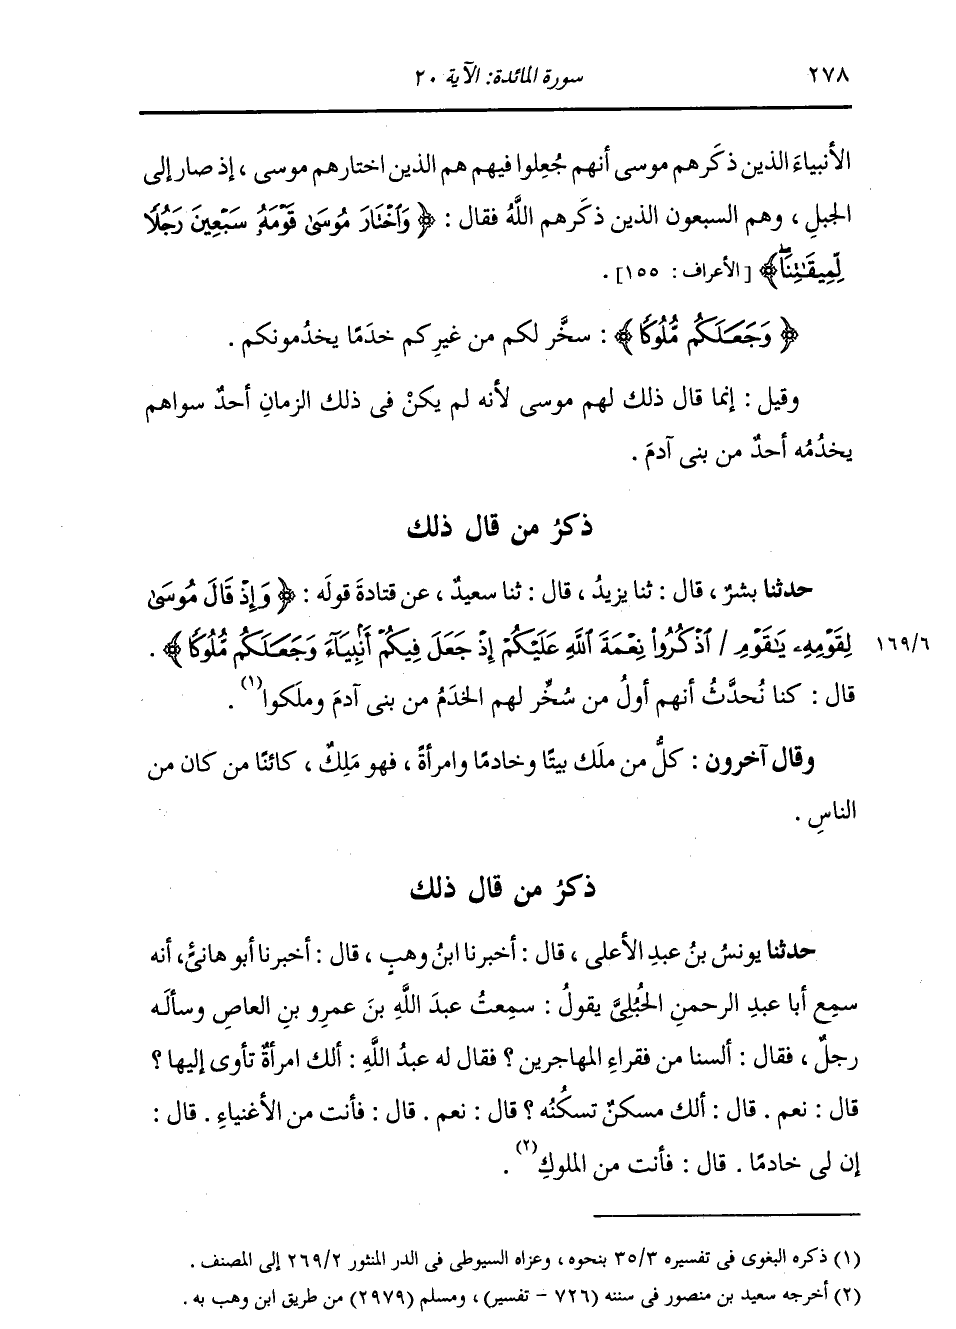 ٢٧٨ سورة المائدة: الآية ٢٠
الأنبياءَ الذين ذكَرهم موسى أنهم جُعِلوا فيهم هم الذين اختارهم موسى ، إذ صار إلى
الجبلِ ، وهم السبعون الذين ذكَرهم اللَّهُ فقال : ﴿ وَٱخْتَارَ مُوسَىٰ قَوْمَهُۥ سَبْعِينَ رَجُلًا
لِّمِيقَٰتِنَاۖ ﴾ [الأعراف : ١٥٥] .
﴿ وَجَعَلَكُم مُّلُوكًا ﴾ : سخَّر لكم من غيرِكم خدَمًا يخدُمونكم .
وقيل : إنما قال ذلك لهم موسى لأنه لم يكنْ فى ذلك الزمانِ أحدٌ سواهم
يخدُمُه أحدٌ من بنى آدمَ .
ذكرُ من قال ذلك
حدثنا بشرٌ ، قال : ثنا يزيدُ ، قال : ثنا سعيدٌ ، عن قتادةَ قولَه : ﴿ وَإِذْ قَالَ مُوسَىٰ
لِقَوْمِهِۦ يَٰقَوْمِ / ٱذْكُرُوا۟ نِعْمَةَ ٱللَّهِ عَلَيْكُمْ إِذْ جَعَلَ فِيكُمْ أَنۢبِيَآءَ وَجَعَلَكُم مُّلُوكًا ﴾ . ١٦٩/٦
قال : كنا نُحدَّثُ أنهم أولُ من سُخِّر لهم الخدَمُ من بنى آدمَ وملَكوا(١) .
وقال آخرون : كلُّ من ملَك بيتًا وخادمًا وامرأةً ، فهو مَلِكٌ ، كائنًا من كان من
الناسِ .
ذكرُ من قال ذلك
حدثنا يونسُ بنُ عبدِ الأعلى ، قال : أخبرنا ابنُ وهبٍ ، قال : أخبرنا أبو هانئٍ، أنه
سمِع أبا عبدِ الرحمنِ الحُبُلِىَّ يقولُ : سمِعتُ عبدَ اللَّهِ بنَ عمرِو بنِ العاصِ وسأله
رجلٌ ، فقال : ألسنا من فقراءِ المهاجرين ؟ فقال له عبدُ اللَّهِ : ألك امرأةٌ تأوى إليها ؟
قال : نعم . قال : ألك مسكنٌ تسكُنُه ؟ قال : نعم . قال : فأنت من الأغنياءِ . قال :
إن لى خادمًا . قال : فأنت من الملوكِ(٢) .
(١) ذكره البغوى فى تفسيره ٣٥/٣ بنحوه ، وعزاه السيوطى فى الدر المنثور ٢٦٩/٢ إلى المصنف .
(٢) أخرجه سعيد بن منصور فى سننه (٧٢٦ – تفسير) ، ومسلم (٢٩٧٩) من طريق ابن وهب به .